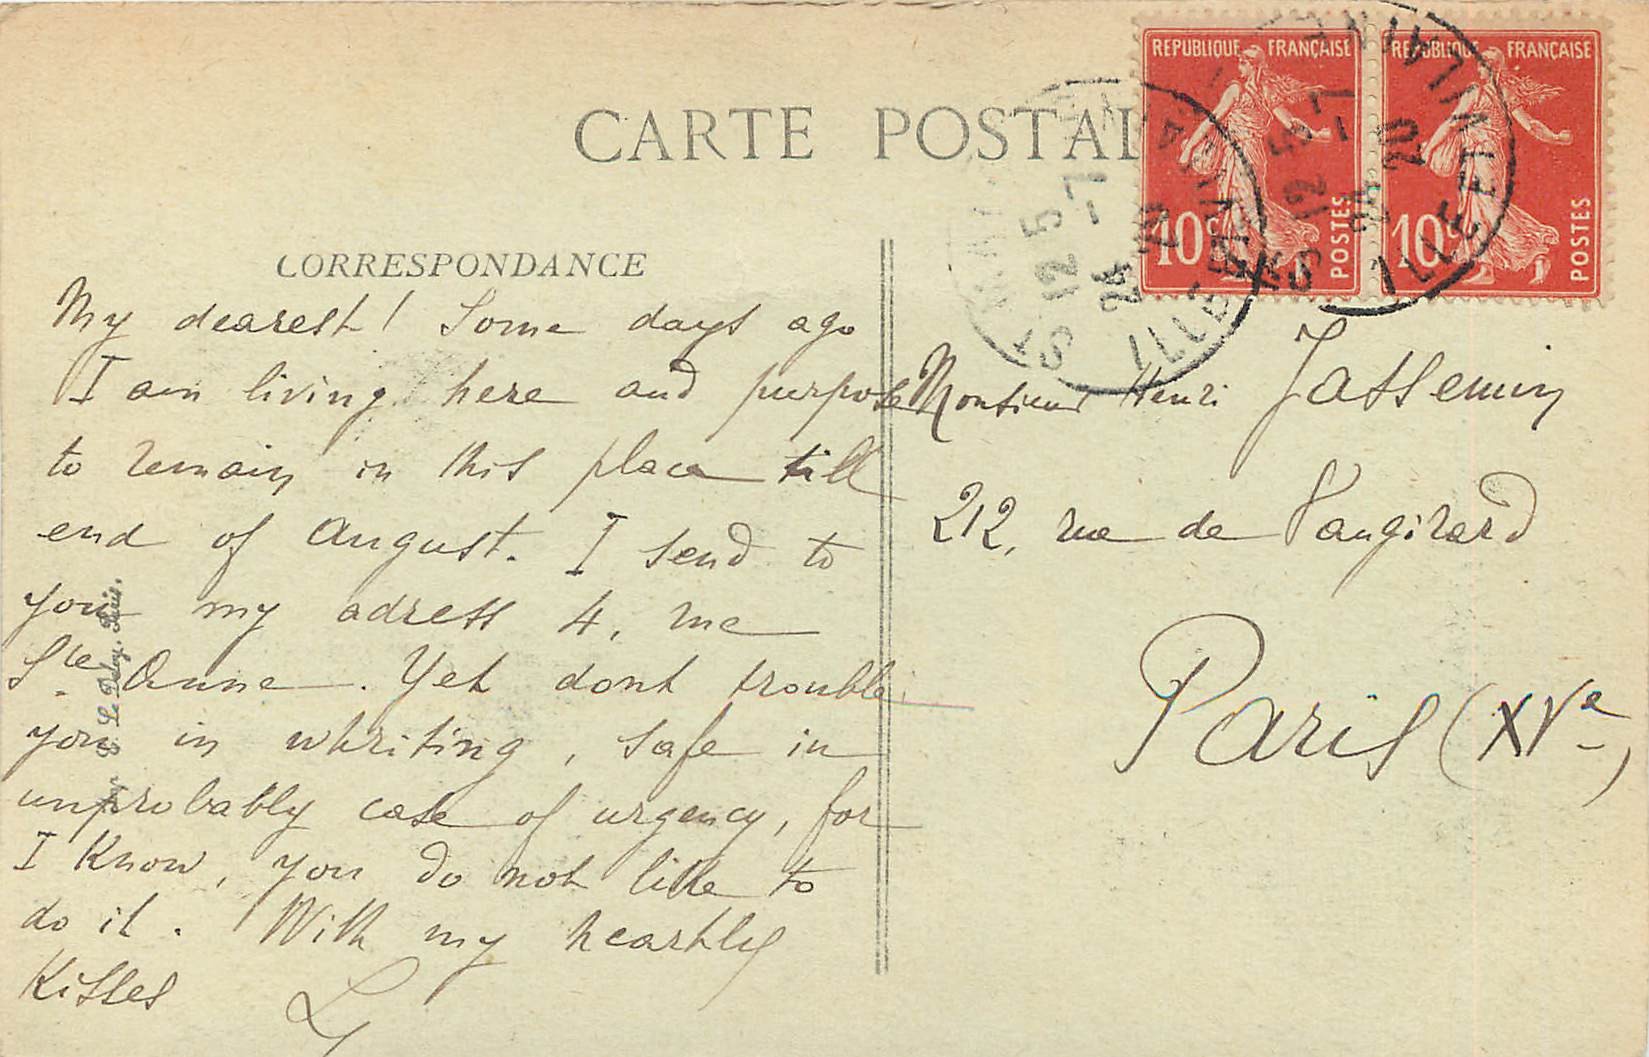 CARTE POSTAL
REPUBLIQUE FRANÇAISE
10c
POSTES
REPUBLIQUE FRANÇAISE
10c
POSTES
12 5
24 -7
20
ILLE ET VILAINE
12 5
24 -7
20
ILLE ET VILAIN
CORRESPONDANCE
My dearest! Some days ago
I am living here and purpose
to remain in this place till
end of August. I send to
you my adress 4, rue
Ste Anne. Yet dont trouble
you in whriting, safe in
unprobably case of urgency, for
I know, you do not like to
do it. With my heartly
Kisses
L
Monsieur Henri Jassemin
212, rue de Vaugirard
Paris (XVe)
Paris.